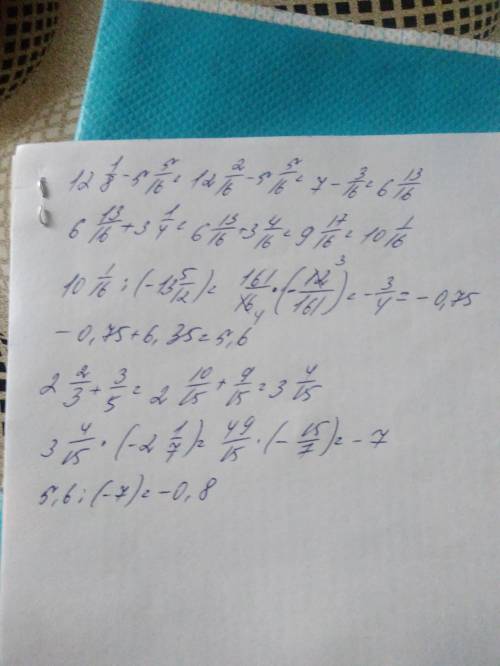 12 1/8 - 5 5/16 = 12 2/16 - 5 5/16 = 7 - 3/16 = 6 13/16
6 13/16 + 3 1/4 = 6 13/16 + 3 4/16 = 9 17/16 = 10 1/16
10 1/16 : (-13 5/12) = 161/16 4 · (-12/161) 3 = -3/4 = -0,75
-0,75 + 6,35 = 5,6
2 2/3 + 3/5 = 2 10/15 + 9/15 = 3 4/15
3 4/15 · (-2 1/7) = 49/15 · (-15/7) = -7
5,6 : (-7) = -0,8